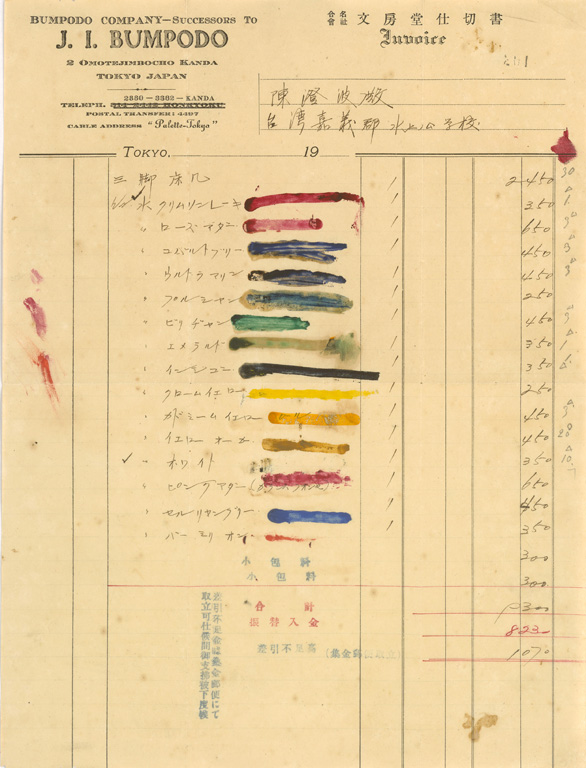 BUMPODO COMPANY—SUCCESSORS TO
J. I. BUMPODO
2 OMOTEJIMBOCHO KANDA
TOKYO JAPAN
2530 — 3382 — KANDA
TELEPH.
POSTAL TRANSFER: 4497
CABLE ADDRESS "Palette-Tokyo"
合名会社 文房堂仕切書
Invoice
陳澄波殿
台湾嘉義郡水上公学校
TOKYO, 19
三脚床几 1 2 450
水 クリムソンレーキ 1 350
〃 ローズマダー 1 650
〃 コバルトブリー 1 450
〃 ウルトラマリン 1 450
〃 プルシャン 1 250
〃 ビリヂャン 1 450
〃 エメラルド 1 350
〃 インジコ 1 350
〃 クロームイエロ 1 250
〃 カドミームイエロ 1 450
〃 イエローオーカ 1 450
〃 ホワイト 1 350
〃 ピンクマダー 1 650
〃 セルリヤンブリー 1 450
〃 バーミリオン 1 350
小包料 300
小包料 300
合計
振替入金 823
差引不足高 (集金郵便取立) 1070
差引不足金は集金郵便にて
取立可仕候間御支拂被下度候